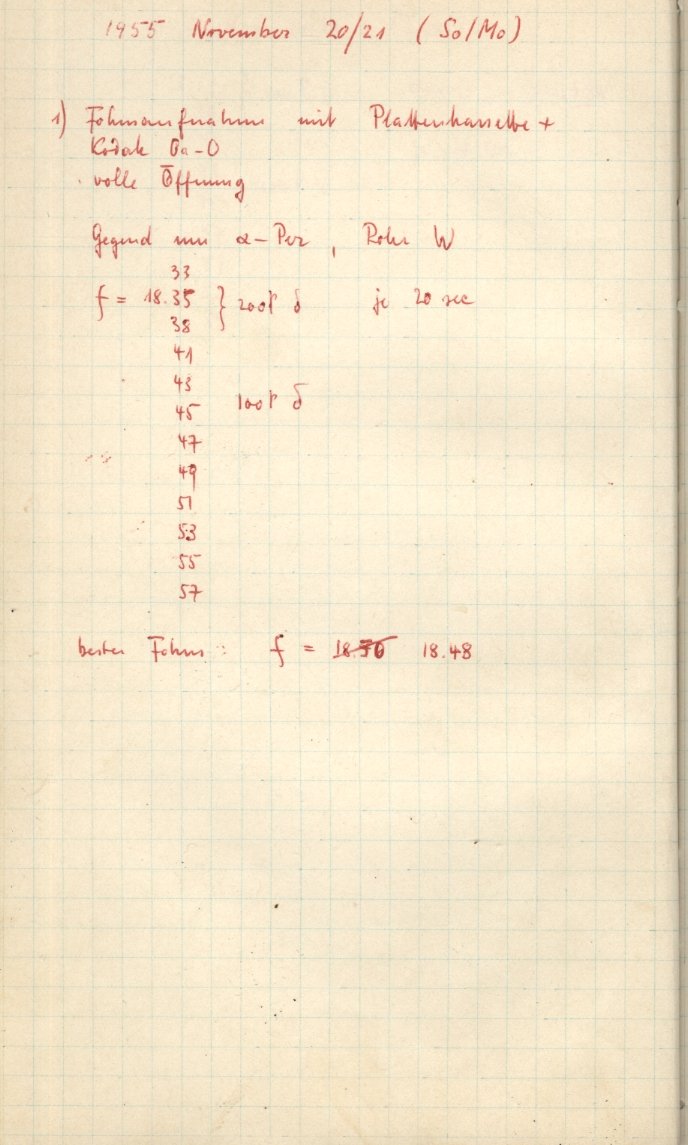 1955 November 20/21 (So/Mo)
1) Fokusaufnahme mit Plattenkassette +
Kodak Oa-O
volle Öffnung
Gegend um α-Per, Rohr W
33
f = 18.35 } δ je 20 sec
38
41
43
45 δ
47
49
51
53
55
57
bester Fokus: f = 18.50 18.48